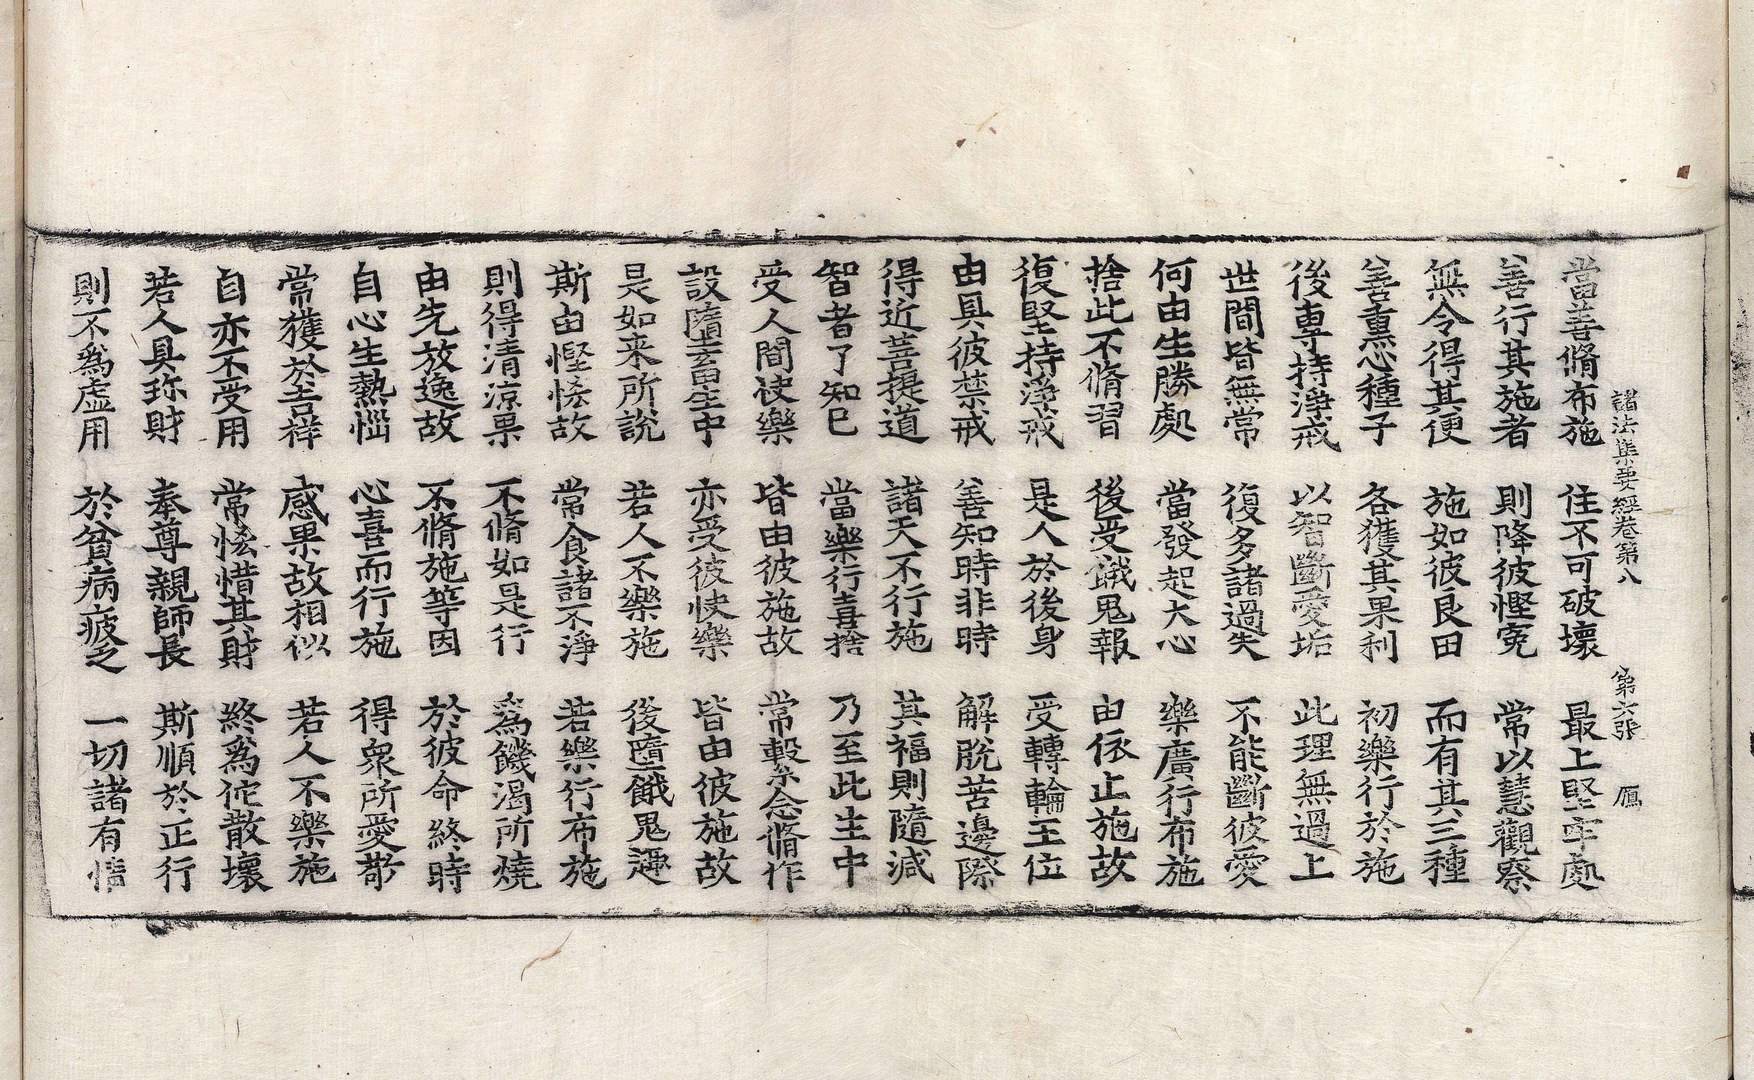 諸法集要經卷第八　第六張　鴈
當善脩布施　住不可破壞　最上堅牢處
善行其施者　則降彼慳寃　常以慧觀察
無令得其便　施如彼良田　而有其三種
善熏心種子　各獲其果利　初樂行於施
後專持淨戒　以智斷愛垢　此理無過上
世間皆無常　復多諸過失　不能斷彼愛
何由生勝處　當發起大心　樂廣行布施
捨此不脩習　後受餓鬼報　由依止施故
復堅持淨戒　是人於後身　受轉輪王位
由具彼禁戒　善知時非時　解脫苦邊際
得近菩提道　諸天不行施　其福則隨減
智者了知已　當樂行喜捨　乃至此生中
受人間快樂　皆由彼施故　常繫念脩作
設墮畜生中　亦受彼快樂　皆由彼施故
是如来所說　若人不樂施　後墮餓鬼趣
斯由慳悋故　常食諸不淨　若樂行布施
則得清涼果　不脩如是行　爲饑渴所燒
由先放逸故　不脩施等因　於彼命終時
自心生熱惱　心喜而行施　得衆所愛敬
常獲於吉祥　感果故相似　若人不樂施
自亦不受用　常悋惜其財　終爲佗散壞
若人具珎財　奉尊親師長　斯順於正行
則不爲虛用　於貧病疲乏　一切諸有情